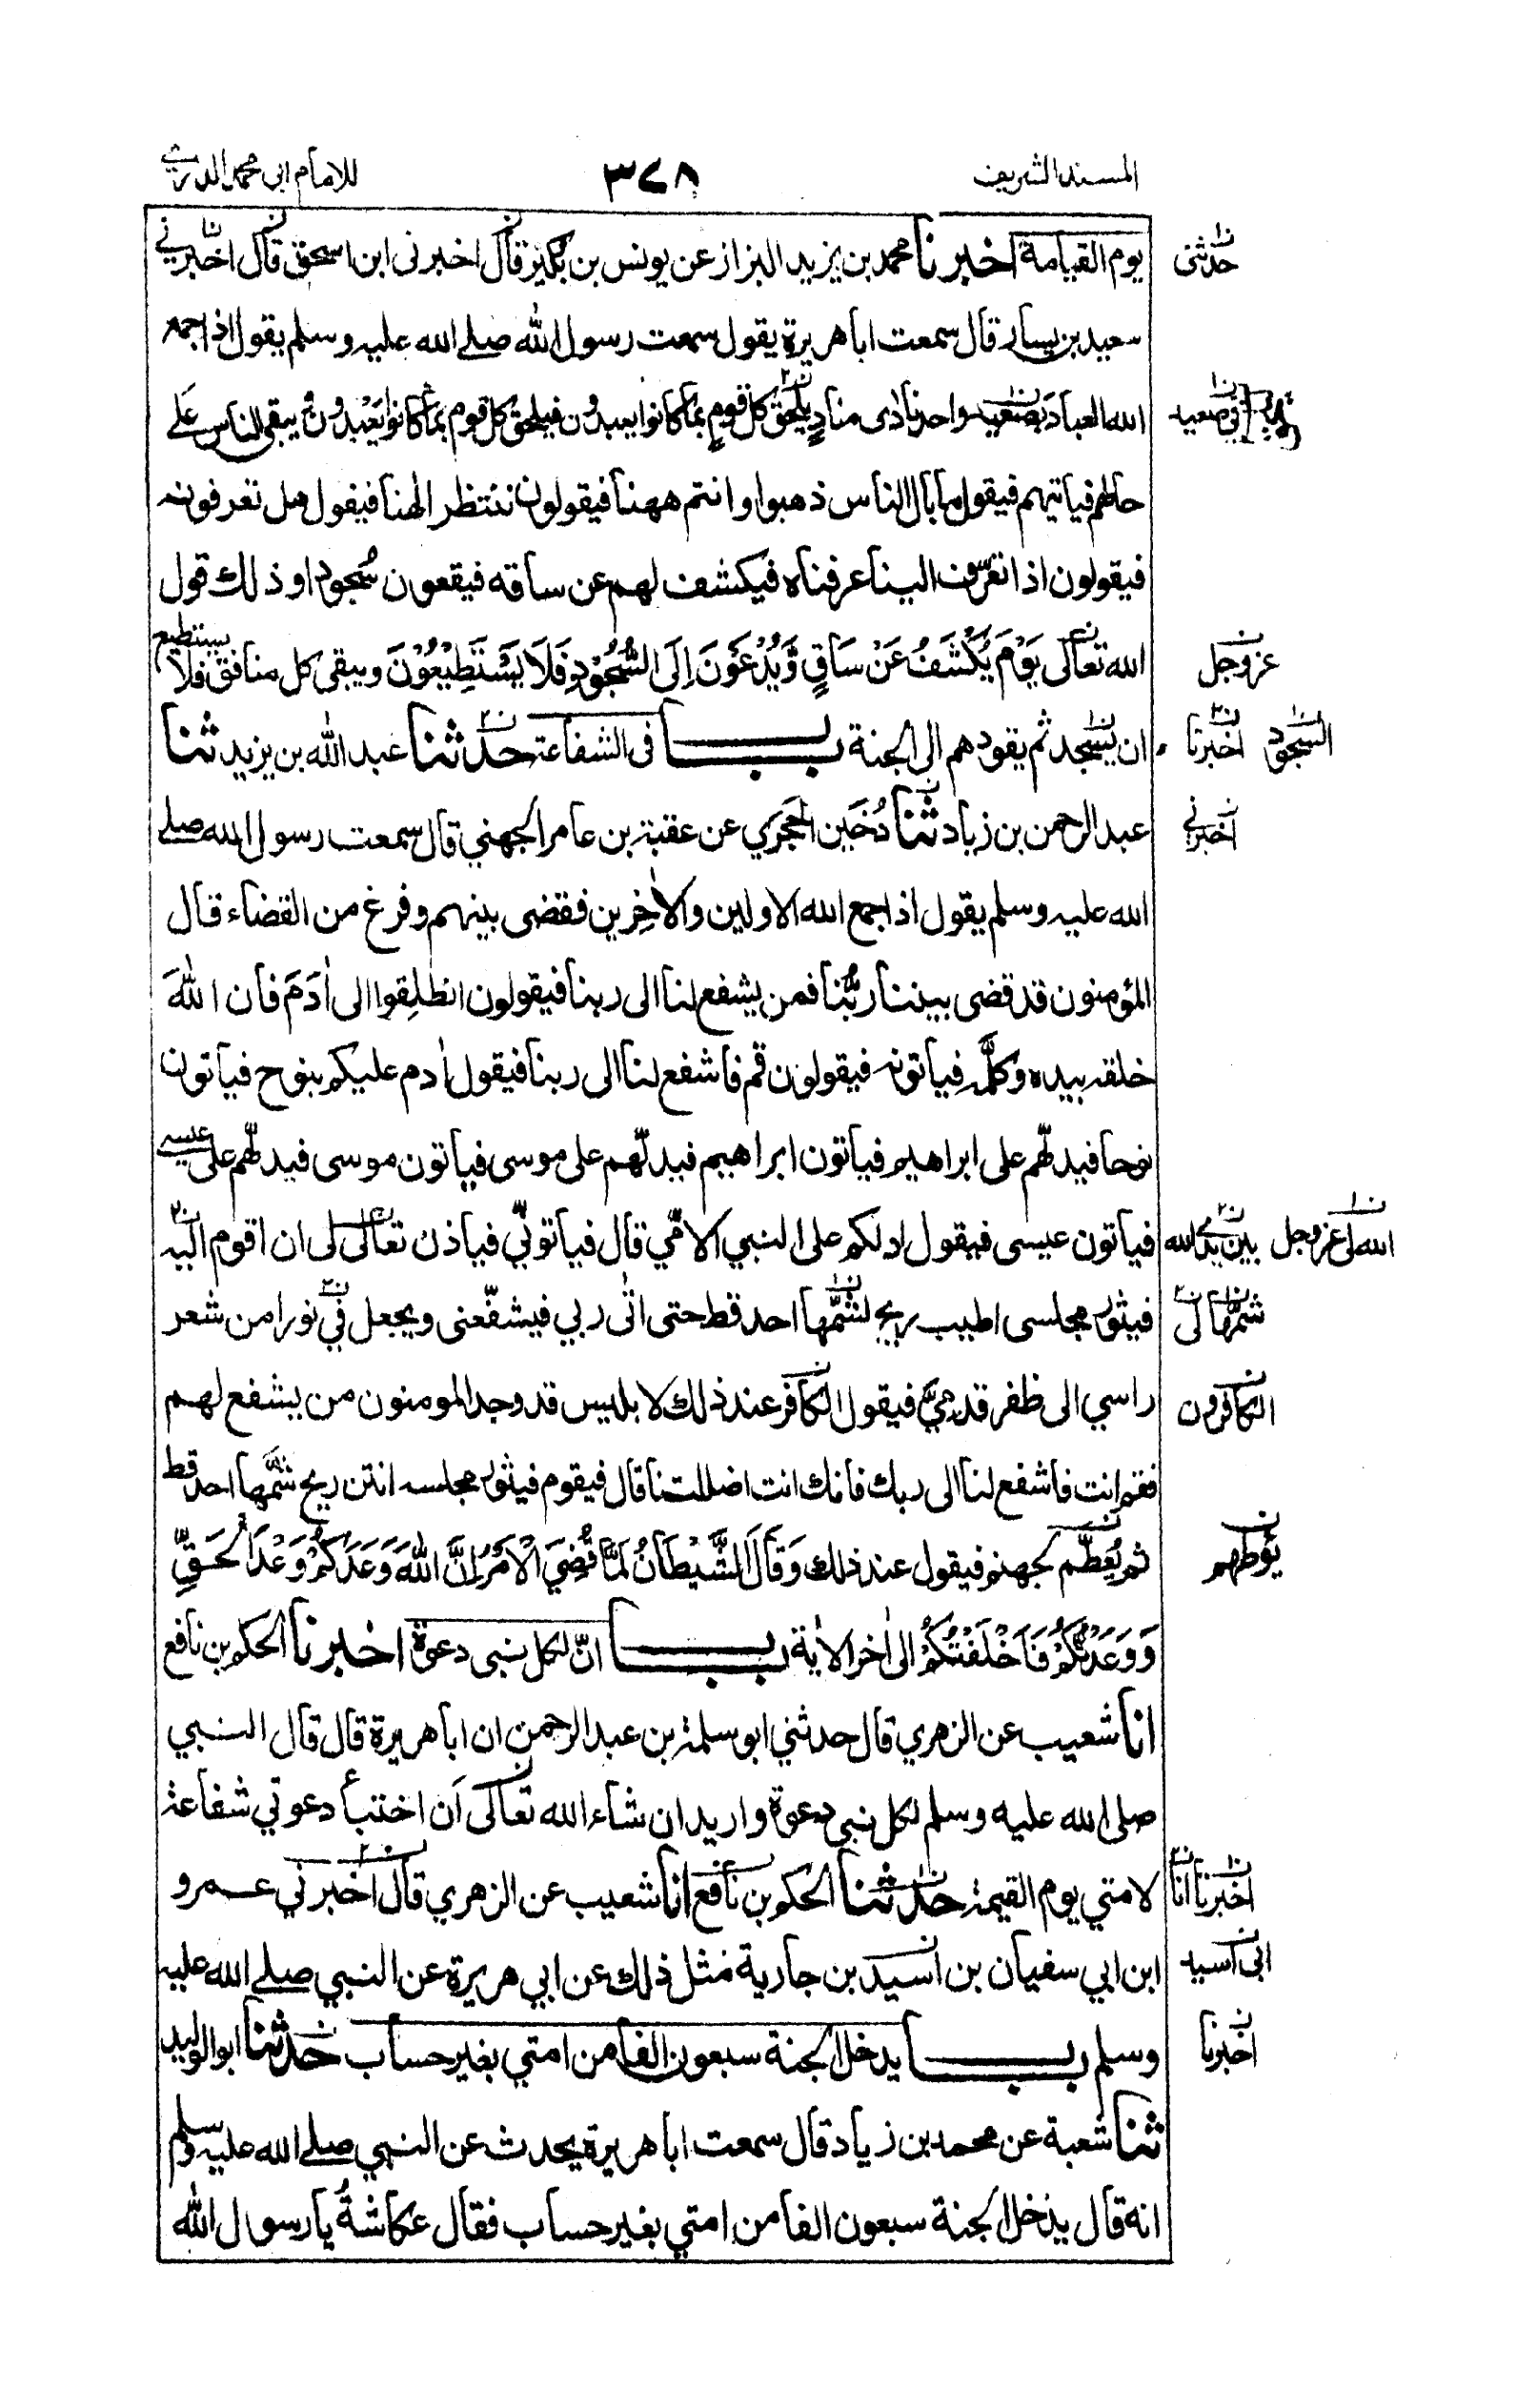 المسند الشريف ٣٧٨ للامام ابي محمد الدارمي
يوم القيامة اخبرنا محمد بن يزيد البزاز عن يونس بن بكير قال اخبرنى ابن اسحق قال اخبرني
سعيد بن يسار قال سمعت ابا هريرة يقول سمعت رسول الله صلے الله عليه وسلم يقول اذا جمع
الله العباد بصعيد واحد نادى مناد يلحق كل قوم بما كانوا يعبدون فيلحق كل قوم بما كانوا يعبدون ويبقى الناس على
حالهم فياتيهم فيقول ما بال الناس ذهبوا وانتم ههنا فيقولون ننتظر الهنا فيقول هل تعرفونه
فيقولون اذا تعرّف الينا عرفناه فيكشف لهم عن ساقه فيقعون سُجودا وذلك قول
الله تعالى يَوْمَ يُكْشَفُ عَنْ سَاقٍ وَّيُدْعَوْنَ اِلَى السُّجُوْدِ فَلَا يَسْتَطِيْعُوْنَ ويبقى كل منافق فلا يستطيع
ان يسجد ثم يقودهم الى الجنة باب فى الشفاعة حدثنا عبد الله بن يزيد ثنا
عبد الرحمن بن زياد ثنا دُخَين الحَجري عن عقبة بن عامر الجهني قال سمعت رسول الله صلے
الله عليه وسلم يقول اذا جمع الله الاولين والاٰخِرين فقضى بينهم وفرغ من القضاء قال
المؤمنون قد قضى بيننا ربُّنا فمن يشفع لنا الى ربنا فيقولون انطلِقوا الى اٰدَمَ فان اللهَ
خلقه بيده وكلَّمه فياتونه فيقولون قم فاشفع لنا الى ربنا فيقول اٰدم عليكم بنوح فياتون
نوحا فيدلّهم على ابراهيم فياتون ابراهيم فيدلّهم على موسى فياتون موسى فيدلّهم على عيسے
فياتون عيسى فيقول ادلكم على النبي الامّي قال فياتونّي فياذن تعالى لى ان اقوم اليه
فيثور مجلسى اطيب ريح شمّها احد قط حتى اٰتى ربي فيشفّعنى ويجعل في نورا من شعر
راسي الى ظفر قدميَّ فيقول الكافر عند ذلك لابليس قد وجد المومنون من يشفع لهم
فقم انت فاشفع لنا الى ربك فانك انت اضللتنا قال فيقوم فيثور مجلسه انتن ريح شمّها احد قط
ثم يُعظّم لجهنم فيقول عند ذلك وَقَالَ الشَّيْطَانُ لَمَّا قُضِيَ الْاَمْرُ اِنَّ اللهَ وَعَدَكُمْ وَعْدَ الْحَقِّ
وَوَعَدْتُّكُمْ فَاَخْلَفْتُكُمْ الى اٰخر الاٰية باب انّ لكل نبى دعوة اخبرنا الحكم بن نافع
انا شعيب عن الزهري قال حدثني ابو سلمة بن عبد الرحمن ان ابا هريرة قال قال النبي
صلى الله عليه وسلم لكل نبى دعوة واريد ان شاء الله تعالى اَن اختبأ دعوتي شفاعة
لامتي يوم القيمة حدثنا الحكم بن نافع انا شعيب عن الزهري قال اخبرني عمرو
ابن ابي سفيان بن اسيد بن جارية مثل ذلك عن ابي هريرة عن النبي صلے الله عليه
وسلم باب يدخل الجنة سبعون الفا من امتي بغير حساب حدثنا ابو الوليد
ثنا شعبة عن محمد بن زياد قال سمعت ابا هريرة يحدث عن النبي صلے الله عليه وسلم
انه قال يدخل الجنة سبعون الفا من امتي بغير حساب فقال عكاشةُ يا رسول الله
حدثنى
في صعيد
عز وجل
اخبرنا السجود
اخبرني
بين يدي الله الله لى عز وجل
شمّها لى
الكافرون
يؤطهم
انا اخبرنا
ابى اسيد
اخبرنا